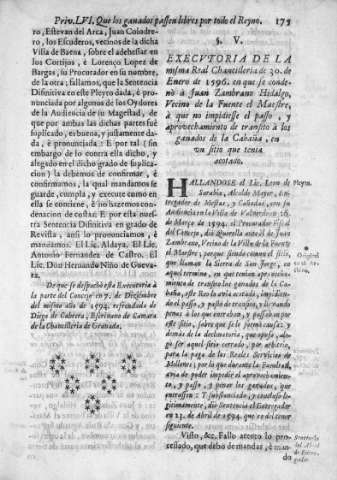 Priv. LVI. Que los ganados passen libres por todo el Reyno. 175
ro, Estevan del Arca, Juan Colodre-
ro, los Escuderos, vecinos de la dicha
Villa de Baena, sobre el adehesar en
los Cortijos, è Lorenço Lopez de
Bargas, su Procurador en su nombre,
de la otra; fallamos, que la Sentencia
Difinitiva en este Pleyto dada, è pro-
nunciada por algunos de los Oydores
de la Audiencia de su Magestad, de
que por ambas las dichas partes fué
suplicado, es buena, y justamente da-
da, è pronunciada: E por tal (sin
embargo de lo contra ella dicho, y
alegado en el dicho grado de suplica-
cion) la debemos de confirmar, è
confirmamos, la qual mandamos se
guarde, cumpla, y execute como en
ella se contiene, è no hazemos con-
denacion de costas: E por esta nuestra
Sentencia Difinitiva en grado de
Revista, ansi lo pronunciamos, è
mandamos. El Lic. Aldaya. El Lic.
Antonio Fernandez de Castro. El
Lic. Don Hernando Niño de Gueva-
ra.
De que se despachò esta Executoria à
la parte del Concejo en 7. de Diziembre
del mismo año de 1594. refrendada de
Diego de Cabrera, Escrivano de Camara
de la Chancilleria de Granada.
§. V.
EXECUTORIA DE LA
misma Real Chancilleria de 30. de
Enero de 1596. en que se conde-
nò à Juan Zambrano Hidalgo,
Vecino de la Fuente el Maestre,
à que no impidiesse el passo, y
aprovechamiento de transito à los
ganados de la Cabaña, en
un sitio que tenia
acotado.
HALLANDOSE el Lic. Leon de
Sarabia, Alcalde Mayor, En-
tregador de Mestas, y Cañadas, con su
Audiencia en la Villa de
Março de 1594. el Procurador Fiscal
del Concejo, diò Querella ante èl de Juan
Zambrano, Vecino de la Villa de la Fuente
el Maestre; porque siendo comun el sitio,
que llaman la Sierra de San Jorge, en
aquel termino, en que tenian aprovecha-
miento de transito los ganados de la Ca-
baña, este Reo lo avia acotado, impidien-
do el passo, y pasto de transito, y llevando
penas à los que entraban, y passaban por
este sitio, sobre que se le formò causa, y
demàs de la declaratoria, que opuso, ale-
gò ser aquel sitio cerrado, por arbitrio,
para la paga de los Reales Servicios de
Millones, por lo que durante la facultad,
avia de poder impedir el aprovechamien-
to, y passo, y penar los ganados, que
entrassen: Y sustanciado, y conclusso le-
gitimamente, diò Sentencia el Entregador
en 23. de Abril de 1594. que es del tenor
siguiente.
Visto, &c. Fallo atento lo pro-
cessado, que debo de mandar, è man-
do
Pleyto.
Original
Sentencia
del Alcalde